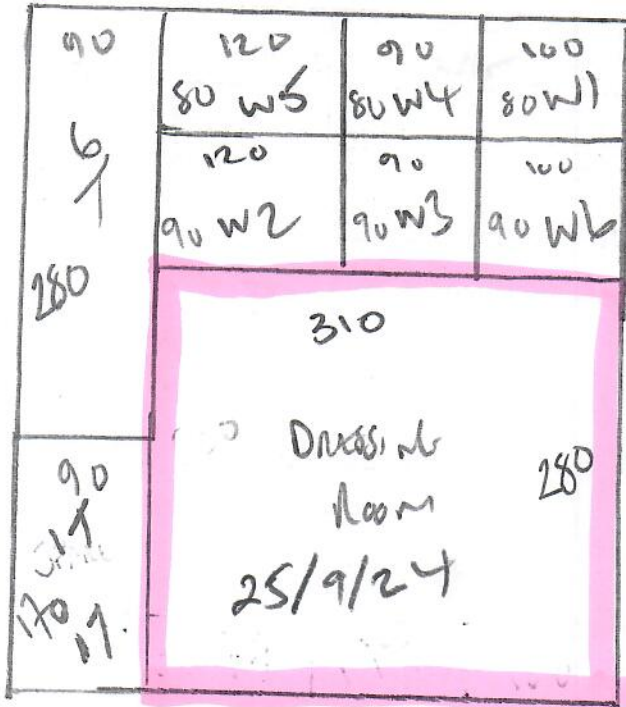 90
6
T
280
120
80 W5
90
80 W4
100
80 W1
120
90 W2
90
90 W3
100
90 W6
310
Dressing
Room
280
25/9/24
90
1T
170